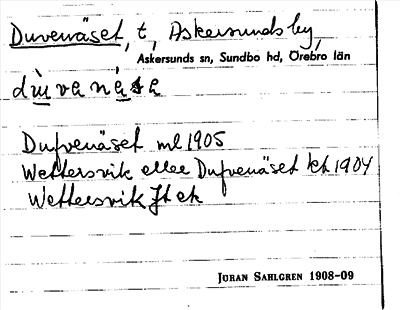 Duvenäset, t, Askersunds by,
Askersunds sn, Sundbo hd, Örebro län
Dufvenäset ml 1905
Wettersvik eller Dufvenäset kt 1904
Wettersvik Jt ek
JÖRAN SAHLGREN 1908-09